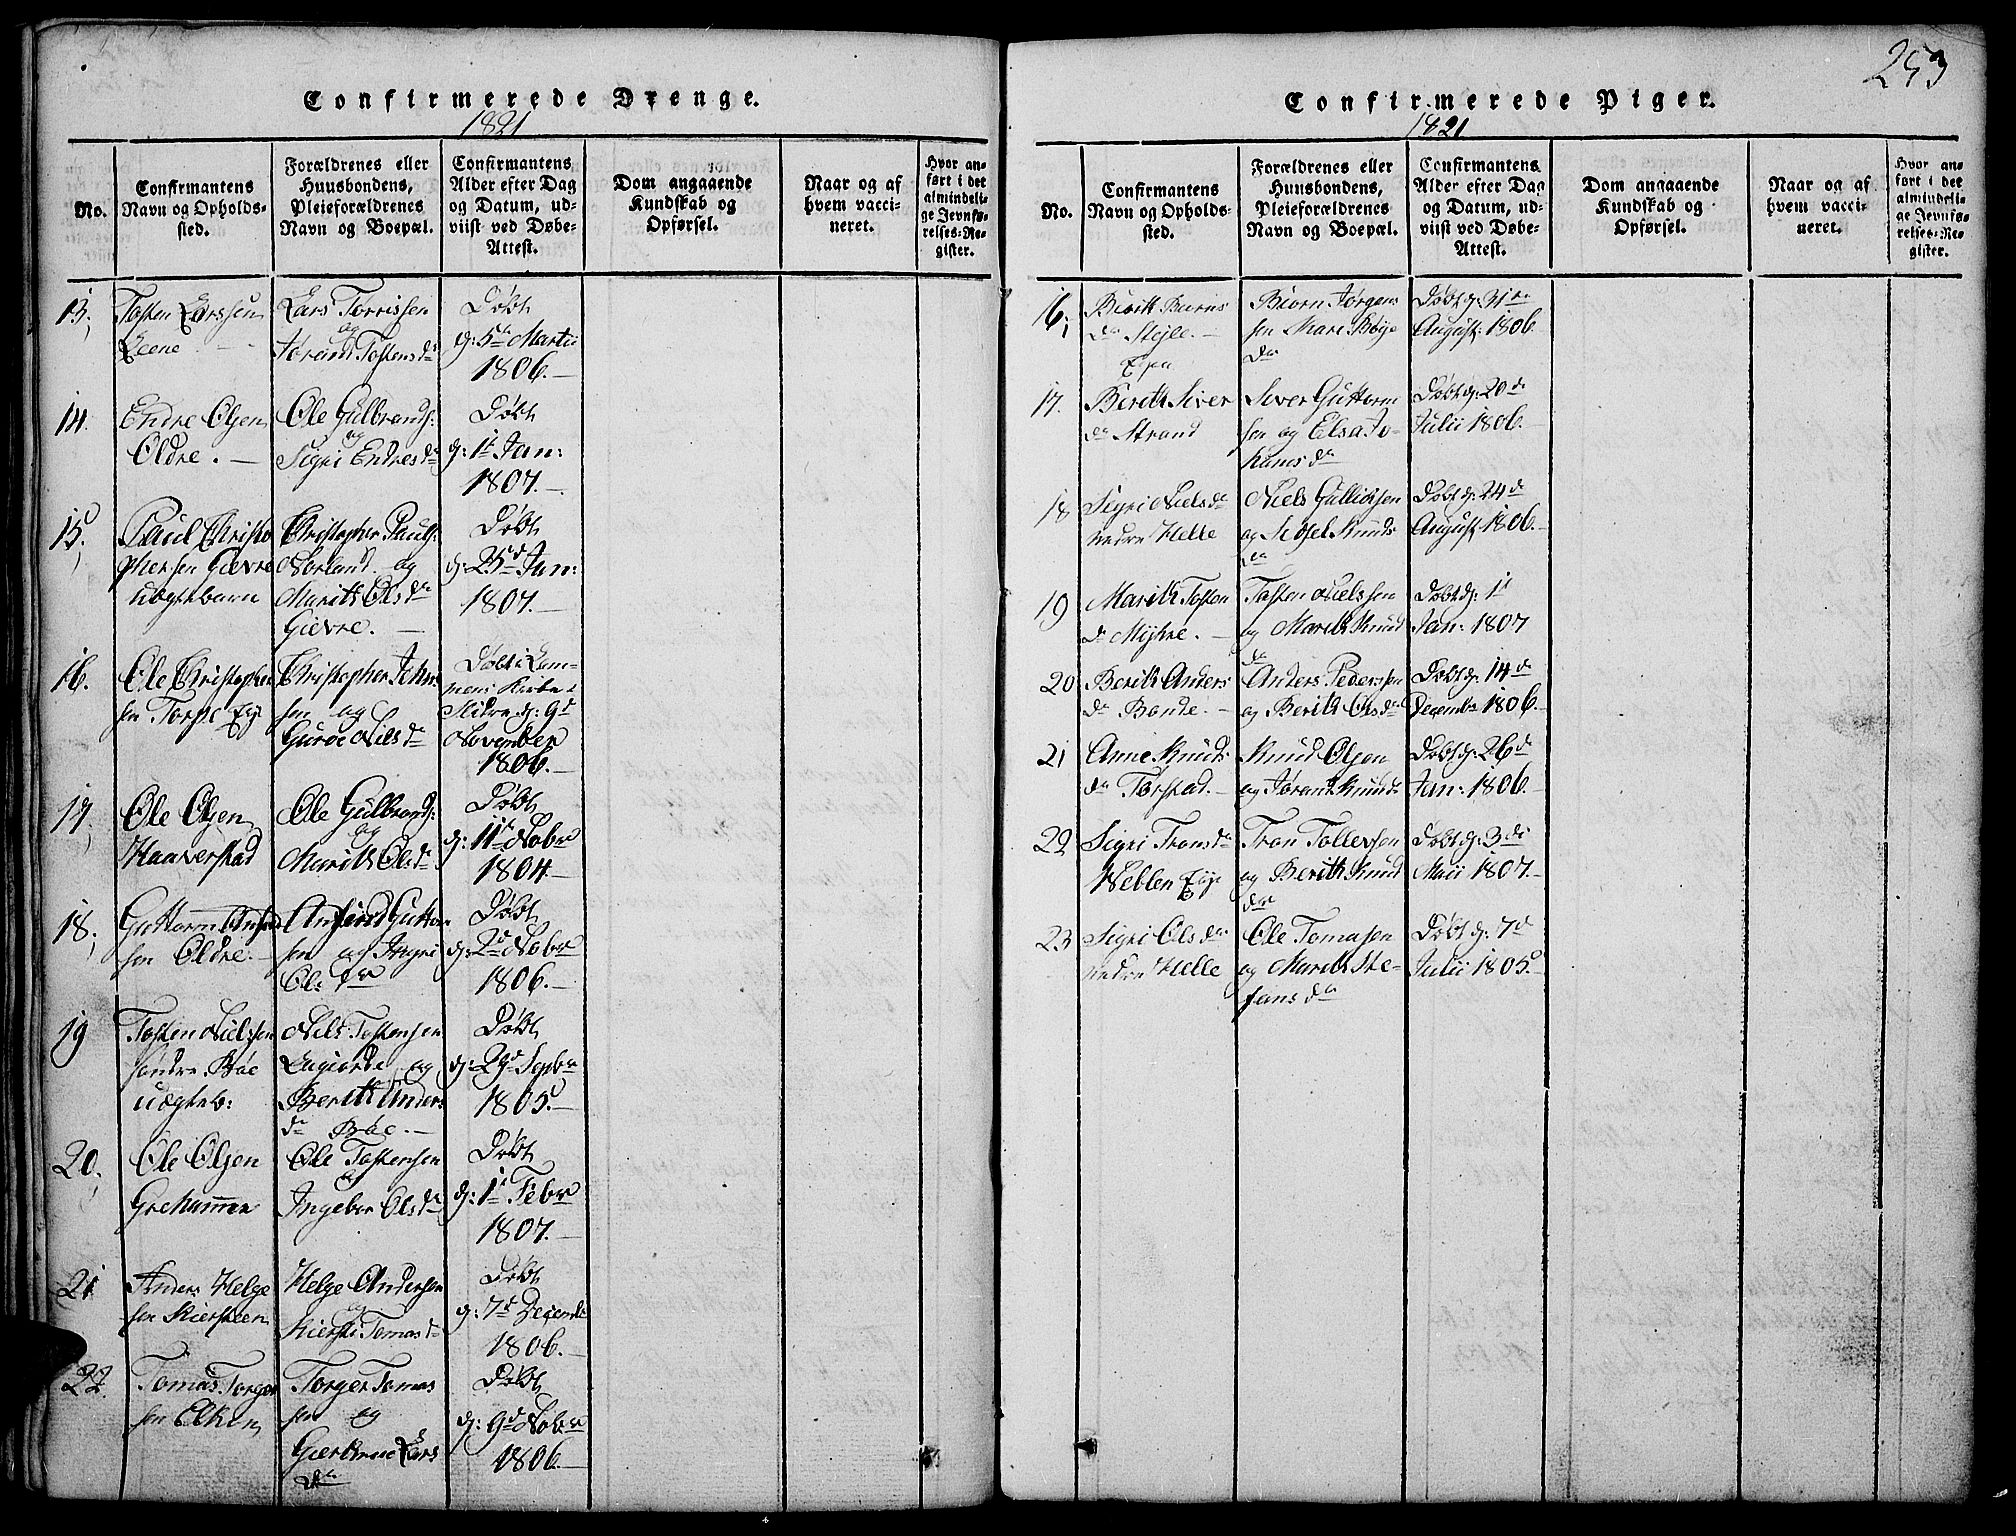 253
Confirmerede Drenge.
1821
No.
Confirmantens
Navn og Opholds-
sted.
Forældrenes eller
Huusbondens,
Pleieforældrenes
Navn og Boepæl.
Confirmantens
Alder efter Dag
og Datum, ud-
viist ved Døbe-
Attest.
Dom angaaende
Kundskab og
Opførsel.
Naar og af
hvem vacci-
neret.
Hvor an-
ført i det
almindeli-
ge Jevnfø-
relses-Re-
gister.
13,
Tosten Larssen
Lars Torrissen
og
Jørand Tostens dr
Døbt
d: 5te Martii
1806.
14.
Endre Olsen
Oldre.
Ole Gulbrands:
og
Sigri Endres dr
Døbt
d: 1te Jan:
1807.
15.
Paul Christo
phersen Gievre
uægtebarn
Christopher Pauls:
Norland og
Marith Ols dr
Gievre.
Døbt
d: 25de Jan:
1807.
16.
Ole Christopher
sen Torpe Eye
Christopher John
sen og
Guroe Niels dr
Døbt i Lom-
mens Kirke i
Slidre d: 9d
November
1806.
17,
Ole Olsen
Haaverstad
Ole Gulbrands:
og
Marith Ols dr
Døbt
d: 11te Nobr
1804.
18,
Guttorm Anfind
sen Oldre.
Anfind Guttorm
sen og Ingri
Ols dr
Døbt
d: 2d Nobr
1806.
19
Tosten Nielssen
søndre Bøe
uægteb:
Niels Tostensen
og
Berith Anders
dr Bøe.
Døbt
d: 29d Sepbr
1805.
20,
Ole Olsen
Grehamer
Ole Tostensen
og
Ingebor Ols dr
Døbt
d: 1te Febr
1807.
21
Anders Helge
sen Kiersteen
Helge Andersen
og
Kiersti Tomas dr
Døbt
d: 7d Decemb
1806.
22.
Tomas Torger
sen Elken
Torger Tomas
sen og
Lars
dr
Døbt
d: 9d Nobr
1806.
Confirmerede Piger.
1821
No.
Confirmantens
Navn og Opholds-
sted.
Forældrenes eller
Huusbondens,
Pleieforældrenes
Navn og Boepæl.
Confirmantens
Alder efter Dag
og Datum, ud-
viist ved Døbe-
Attest.
Dom angaaende
Kundskab og
Opførsel.
Naar og af
hvem vacci-
neret.
Hvor an-
ført i det
almindeli-
ge Jevnfø-
relses-Re-
gister.
16,
Berith Biørns
dr
Biørn Jørgens
sen Mari Bøye
dr
Døbt d: 31te
August: 1806.
17.
Berith Siver
dr Strand
Siver Guttorm
sen og Elsa Jo-
hanes dr
Døbt d: 20de
Julii 1806.
18
Sigri Niels dr
nedre Helle
Niels Gullicksen
og Sidsel Knuds
dr
Døbt d: 24d
August 1806.
19
Marith Tosten
dr Myhre.
Tosten Nielssen
og Marith Knud
dr
Døbt d: 1te
Jan: 1807
20
Berith Anders
dr Bonde.
Anders Pedersen
og Berith Ols dr
Døbt d: 14d
Decembr 1806.
21
Anne Knuds
dr Torstad.
Knud Olsen
og Jørand Knuds
Døbt d: 26d
Jan: 1806.
22
Sigri Trons dr
Heblen Eye
Tron Tollevsen
og Berith Knud
dr
Døbt d: 3de
Maii 1807.
23
Sigri Ols dr
nedre Helle
Ole Tomasen
og Marith Ste-
fans dr
Døbt d: 7d
Julii 1805.